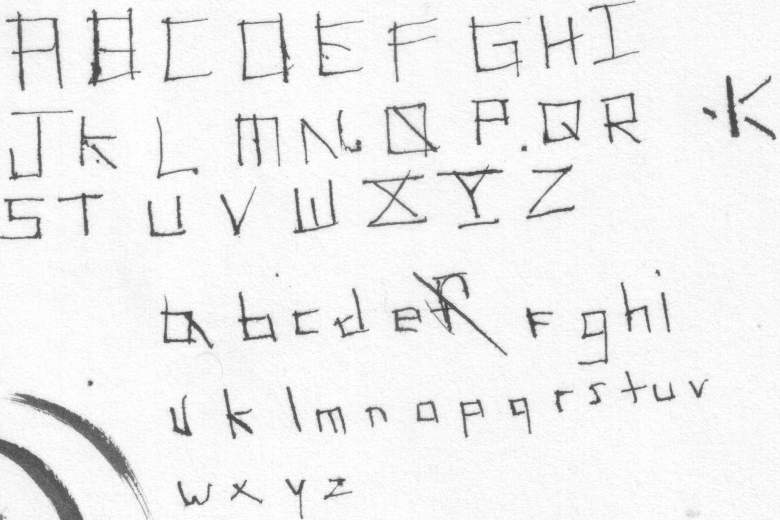 A B C D E F G H I
J K L M N O P Q R K
S T U V W X Y Z
a b c d e f g h i
j k l m n o p q r s t u v
w x y z